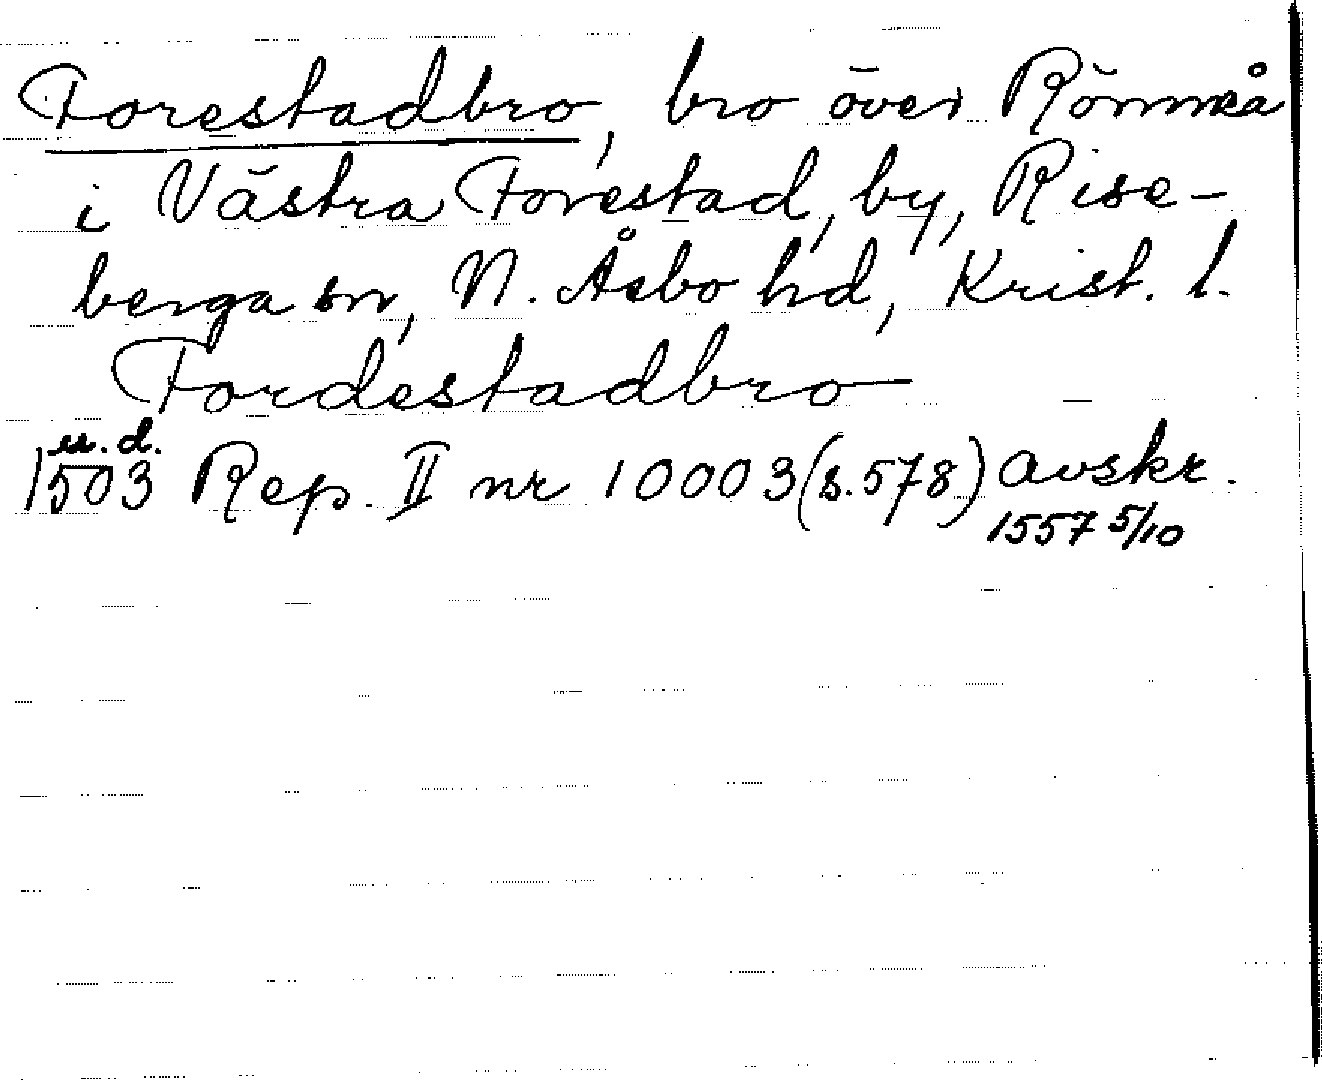 Forestadbro, bro över Rönneå
i Västra Forestad, by, Rise-
berga sn, N. Åsbo hd, Krist. l.
Fordestadbro
u.d.
1503 Rep. II nr 10003 (s. 578) avskr.
1557 5/10